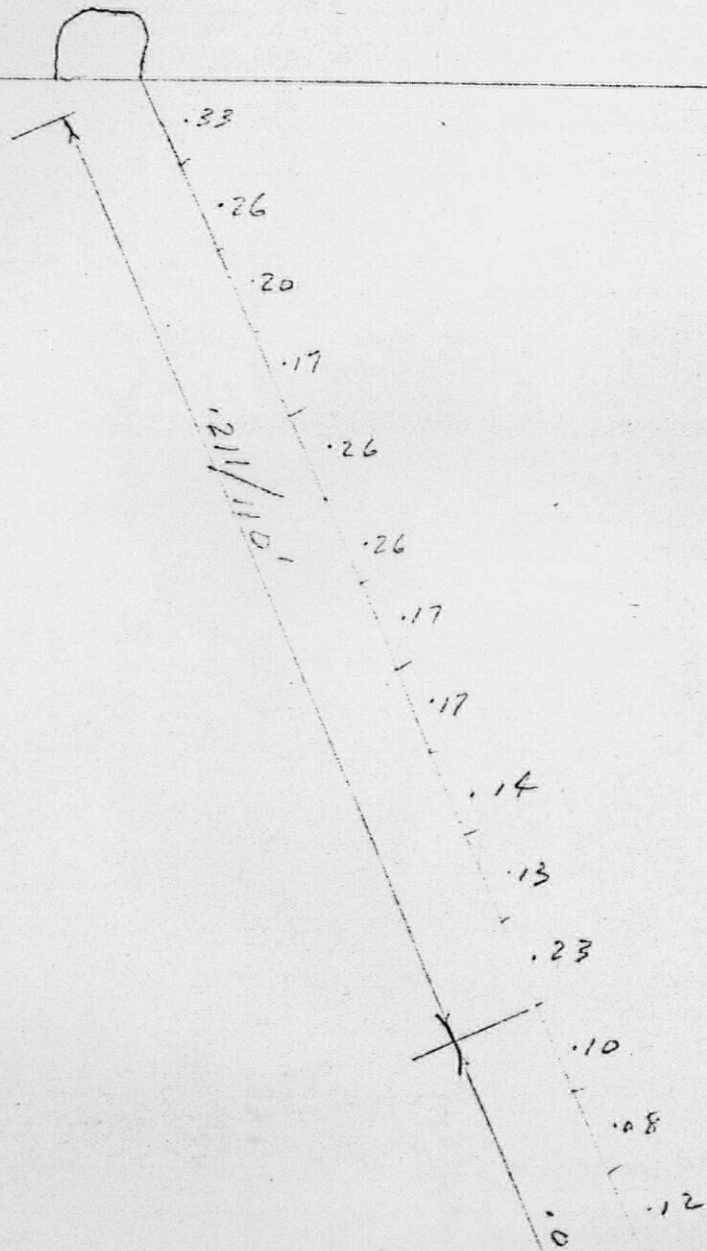 .33
.26
.20
.17
.26
.211/110'
.26
.17
.17
.14
.13
.23
.10
.08
.12
.0